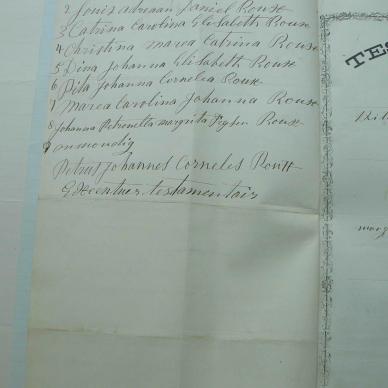 2 Louis adriaan Daniel Rouse
3 Catrina Carolina Elisabeth Rouse
4 Christina marea Catrina Rouse
5 Dina Johanna Elisabeth Rouse
6 Dita Johanna Cornelea Rouse
7 Marea Carolina Johanna Rouse
8 Johanna Petronella margrita Rouse
9 onmondig
Petrus Johannes Corneles
Executeur testamentair
TES